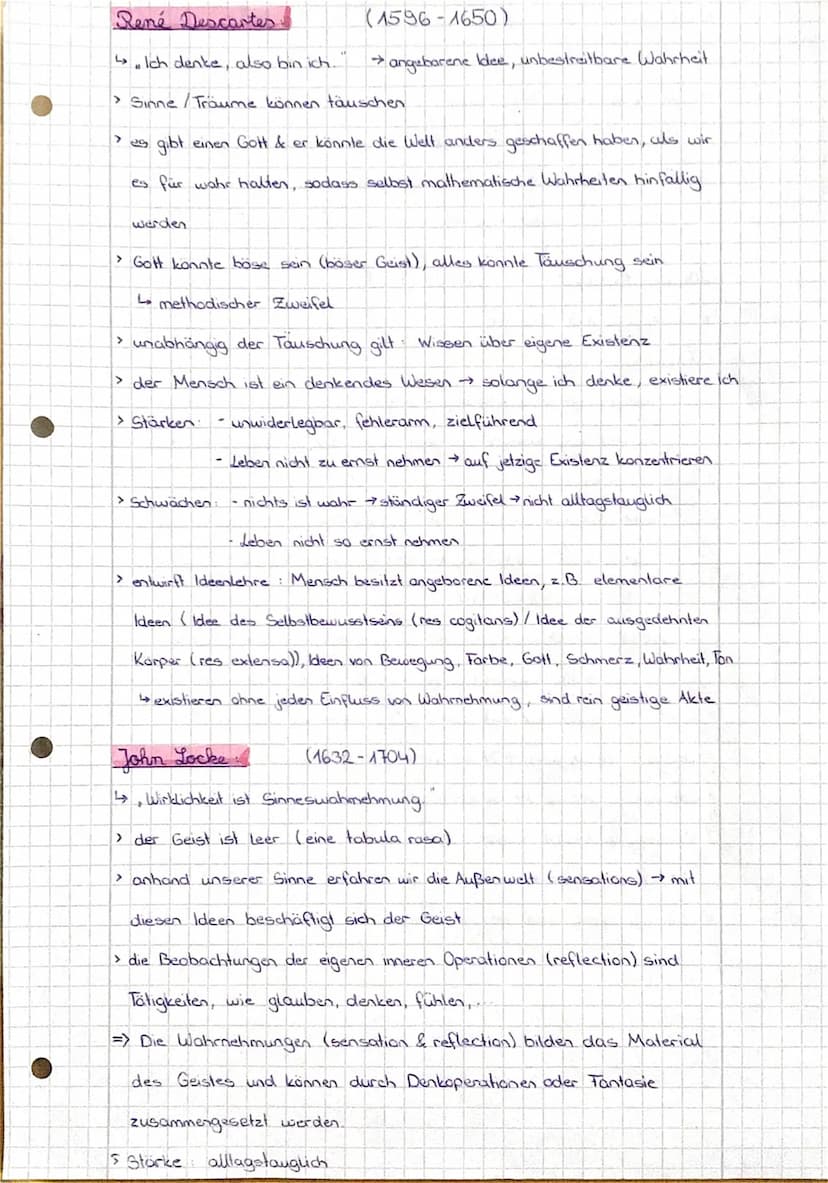 René Descartes: (1596-1650)
↳ „Ich denke, also bin ich." → angeborene Idee, unbestreitbare Wahrheit
> Sinne / Träume können täuschen
> es gibt einen Gott & er könnte die Welt anders geschaffen haben, als wir
es für wahr halten, sodass selbst mathematische Wahrheiten hinfällig
werden
> Gott könnte böse sein (böser Geist), alles könnte Täuschung sein
↳ methodischer Zweifel
> unabhängig der Täuschung gilt: Wissen über eigene Existenz
> der Mensch ist ein denkendes Wesen → solange ich denke, existiere ich
> Stärken: - unwiderlegbar, fehlerarm, zielführend
- Leben nicht zu ernst nehmen → auf jetzige Existenz konzentrieren
> Schwächen: - nichts ist wahr → ständiger Zweifel → nicht alltagstauglich
- Leben nicht so ernst nehmen
> entwirft Ideenlehre: Mensch besitzt angeborene Ideen, z.B. elementare
Ideen (Idee des Selbstbewusstseins (res cogitans) / Idee der ausgedehnten
Körper (res extensa)), Ideen von Bewegung, Farbe, Gott, Schmerz, Wahrheit, Ton
↳ existieren ohne jeden Einfluss von Wahrnehmung, sind rein geistige Akte
John Locke: (1632-1704)
↳ „Wirklichkeit ist Sinneswahrnehmung."
> der Geist ist leer (eine tabula rasa)
> anhand unserer Sinne erfahren wir die Außenwelt (sensations) → mit
diesen Ideen beschäftigt sich der Geist
> die Beobachtungen der eigenen inneren Operationen (reflection) sind
Tätigkeiten, wie glauben, denken, fühlen,...
=> Die Wahrnehmungen (sensation & reflection) bilden das Material
des Geistes und können durch Denkoperationen oder Fantasie
zusammengesetzt werden.
> Stärke: alltagstauglich